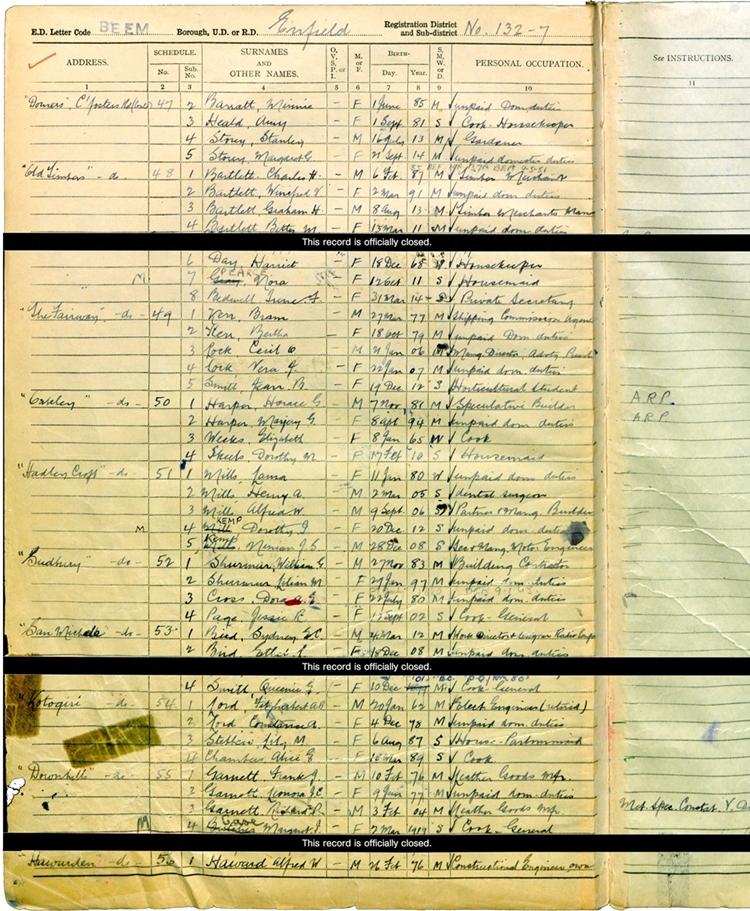 E.D. Letter Code BEEM Borough, U.D. or R.D. Enfield Registration District and Sub-district No. 132-7
ADDRESS. SCHEDULE. No. Sub. No. SURNAMES AND OTHER NAMES. O, V, S, P. or I. M. or F. BIRTH- Day. Year. S, M, W, or D. PERSONAL OCCUPATION. See INSTRUCTIONS.
1 2 3 4 5 6 7 8 9 10 11
47 2 Barratt, Minnie - F 1 June 85 M unpaid Dom. duties
3 Heald, Amy - F 1 Sept 81 S Cook-Housekeeper
4 Storey, Stanley - M 16 13 M Gardener
5 Storey, Margaret G. - F 21 Sept 14 M unpaid domestic duties
"Old Timbers" -do- 48 1 Bartlett, Charles H. - M 6 Feb 87 M Timber Merchant
2 Bartlett, Winifred V. - F 2 Mar 91 M unpaid dom. duties
3 Bartlett, Graham H. - M 8 Aug 13 M Timber Merchants
4 Bartlett Betty M - F 13 Mar 11 M unpaid dom. duties
This record is officially closed.
6 Day, Harriet - F 18 Dec 65 Housekeeper
M 7 PEARCE Nora - F 12 Oct 11 S Housemaid
8 Irene F. - F 31 Mar 14 S Private Secretary
"The Fairway" -do- 49 1 Kerr, Bram - M 27 Mar 77 M Shipping Commission Agent
2 Kerr, Bertha - F 18 Oct 79 M unpaid Dom. duties
3 Cock Cecil - M 21 Jan 06 M Director
4 Cock Vera - F 22 Jan 07 M unpaid dom. duties
5 Smith - F 19 Dec 12 S Horticultural Student
50 1 Harper, Horace G. - M 7 Nov. 81 M Speculative Builder A.R.P.
2 Harper, Marjory G. - F 8 Sept 94 M unpaid dom. duties A.R.P.
3 Weeks, Elizabeth - F 8 Jan 65 W Cook
4 Skeels Dorothy M - F 17 Feb 10 S Housemaid
"Hadley Croft" -do- 51 1 Mills, Laura - F 11 Jan 80 W unpaid dom. duties
2 Mills, Henry A. - M 2 Mar 05 S dental surgeon
3 Mills, Alfred W. - M 9 Sept. 06 Partner Builder
M 4 KEMP Dorothy J - F 20 Dec 12 S unpaid dom. duties
5 KEMP - 28 Dec 08 S Motor Engineer
"Sudbury" -do- 52 1 Shurmur, William G. - M 27 Nov 83 M Building Contractor
2 Shurmur, Lilian M. - F 27 Jan 97 M unpaid dom. duties
3 Cross, Dora - F 22 July 80 M unpaid dom. duties
4 Page, Jessie R - F 17 Sept 02 S Cook-General
"San Michele" -do- 53 1 Bird, Sydney - M 4 Mar 12 M
2 Bird, - F 18 Dec 08 M unpaid dom. duties
This record is officially closed.
4 Smith, Queenie - F 10 Dec M Cook General
"Kotagiri" -do- 54 1 Ford, - M 20 Jan 62 M Elect. Engineer (retired)
2 Ford Constance A. - F 4 Dec 78 M unpaid dom. duties
3 Lily M - F 6 Aug 87 S House-Parlourmaid
4 Chambers Alice E - F 89 S Cook
"Downhills" -do- 55 1 Garnett, Frank J. - M 10 Feb 76 M Leather Goods Mfr.
2 Garnett, - F 9 Jun 77 M unpaid dom. duties
3 Garnett, Richard P. - M 3 Feb 04 M Leather Goods Mfr Met. Spec. Constab.
M 4 Margaret J. - F 2 Mar 1919 S Cook-General
This record is officially closed.
"Hawarden" -do- 56 1 Haward Alfred W - M 26 Feb 76 M Constructional Engineer own